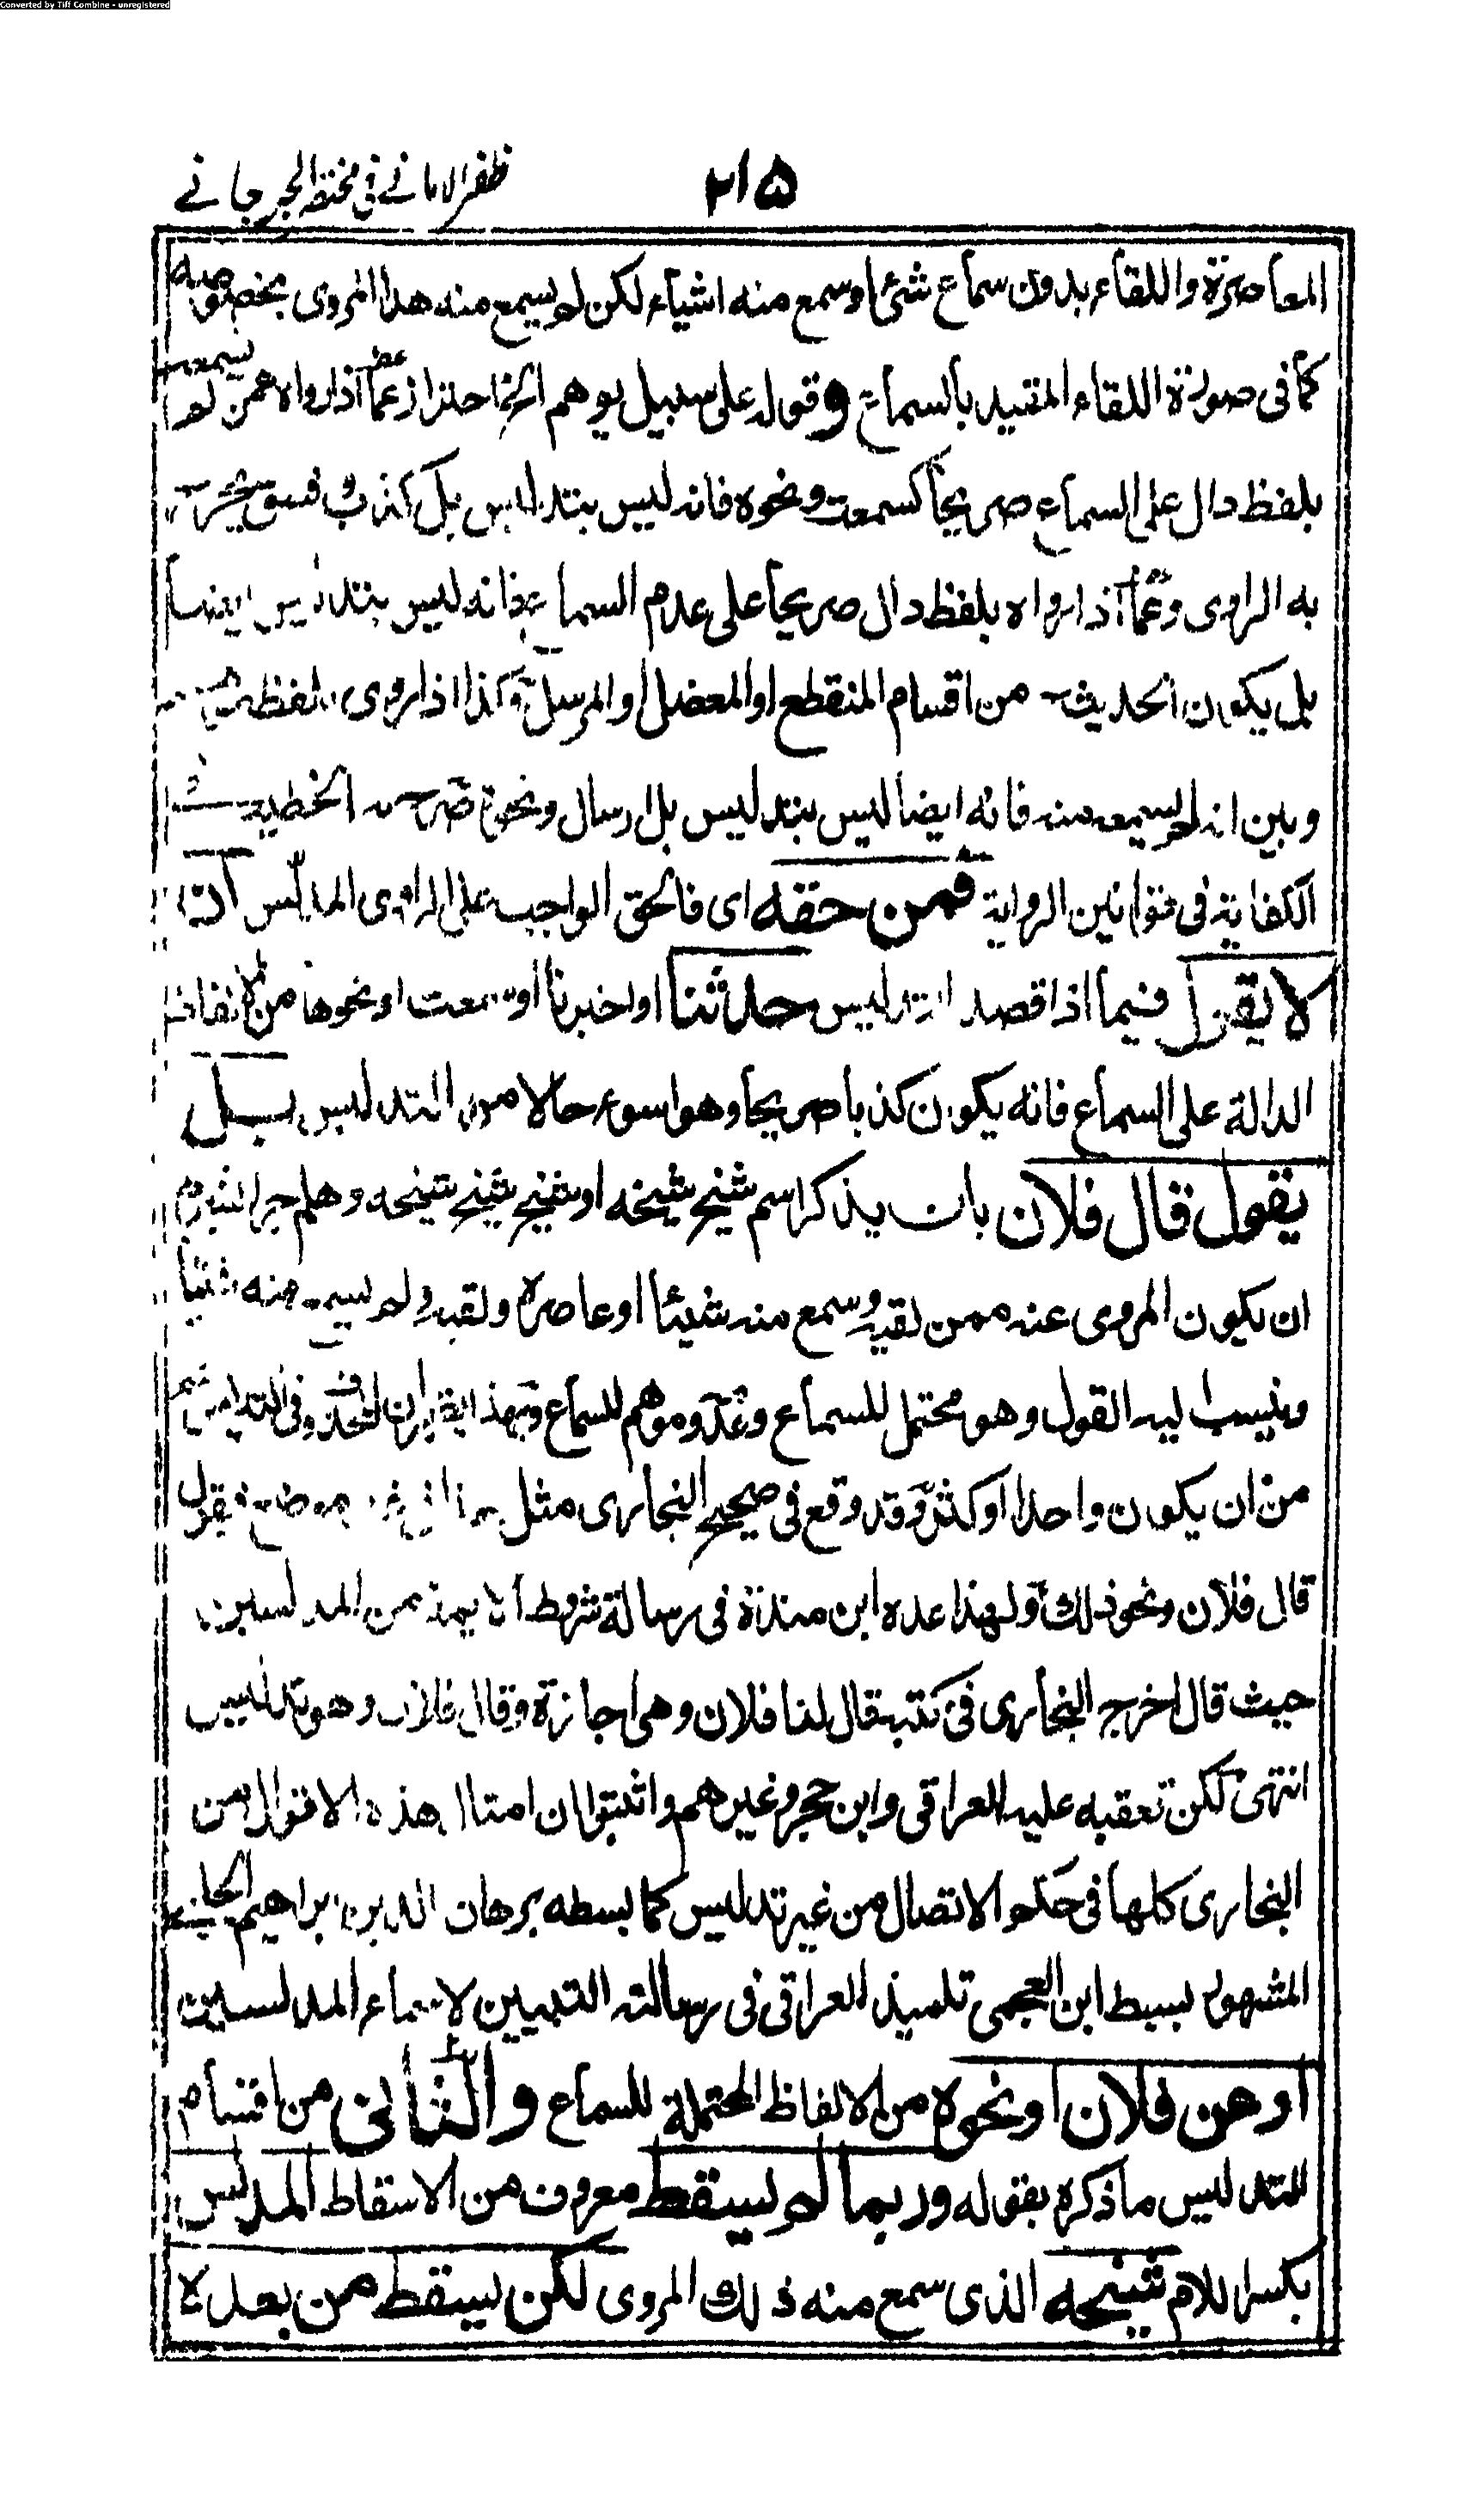 Converted by Tiff Combine - unregistered
٢١٥ ظفر الامانے فی مختصر الجرجانے
المعاصرة واللقاء بدون سماع شئ او سمع منه اشياء لكن لم يسمع منه هذا المروى بخصوصه
كما فى صورة اللقاء المقيد بالسماع وقوله على سبيل يوهم الخ احتراز عما اذا رواه عمن لم يسمعه
بلفظ دال على السماع صريحا كسمعت ونحوه فانه ليس بتدليس بل كذب وفسق يجرح
به الراوى وعما اذا رواه بلفظ دال صريحا على عدم السماع فانه ليس بتدليس ايضا
بل يكون الحديث من اقسام المنقطع او المعضل او المرسل وكذا اذا روى بلفظ
وبين انه لم يسمعه منه فانه ايضا ليس بتدليس بل ارسال ونحوه صرح به الخطيب فى
الكفاية فى قوانين الرواية فمن حقه اى فالحق الواجب على الراوى المدلس ان
لا يقول فيما اذا قصد التدليس حدثنا او اخبرنا او سمعت او نحوها من الالفاظ
الدالة على السماع فانه يكون كذبا صريحا وهو اسوء حالا من التدليس بل
يقول قال فلان بان يذكر اسم شيخ شيخه او شيخ شيخ شيخه وهلم جرا بشرط
ان يكون المروى عنه ممن لقيه وسمع منه شيئا او عاصره ولقيه ولم يسمع منه شيئا
وينسب اليه القول وهو محتمل للسماع وعدمه وموهم للسماع وبهذا يظهر ان المحذوف فى التدليس اعم
من ان يكون واحدا او اكثر وقد وقع فى صحيح البخارى مثل هذا فى غير موضع فيقول
قال فلان ونحو ذلك ولهذا عده ابن مندة فى رسالة شروط الائمة من المدلسين
حيث قال اخرج البخارى فى كتبه قال لنا فلان وهى اجازة وقال فلان وهو تدليس
انتهى لكن تعقبه عليه العراقى وابن حجر وغيرهم واثبتوا ان امثال هذه الاقوال من
البخارى كلها فى حكم الاتصال من غير تدليس كما بسطه برهان الدين ابراهيم الحلبى
المشهور بسبط ابن العجمى تلميذ العراقى فى رسالته التبيين لاسماء المدلسين
او عن فلان او نحوه من الالفاظ المحتملة للسماع والثانى من اقسام
التدليس ما ذكره بقوله وربما لم يسقط معروف من الاسقاط المدلس
بكسر اللام شيخه الذى سمع منه ذلك المروى لكن يسقط من بعده